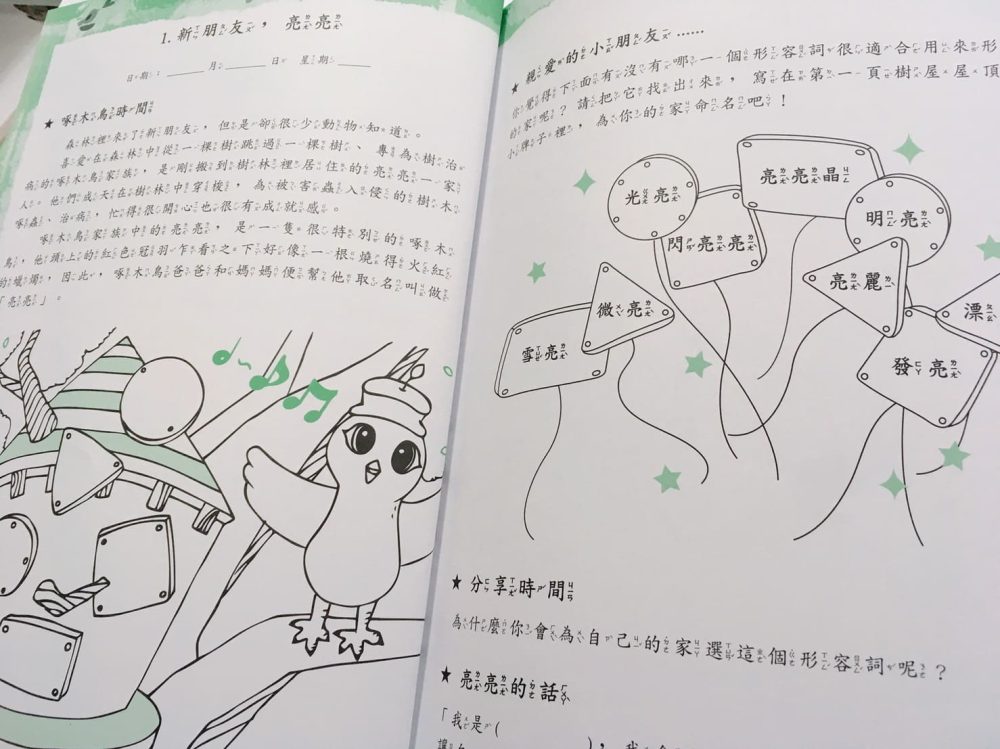 1. 新朋友，亮亮
日期：____月____日 星期____
★ 啄木鳥時間
森林裡來了新朋友，但是卻很少動物知道。
喜愛在森林中從一棵樹跳過一棵樹、專為樹治
病的啄木鳥家族，是剛搬到樹林裡居住的亮亮一家
人。他們成天在樹林中穿梭，為被害蟲入侵的樹木
啄蟲、治病，忙得很開心也很有成就感。
啄木鳥家族中的亮亮，是一隻很特別的啄木
鳥，他頭上的紅色冠羽乍看之下好像一根燒得火紅
的蠟燭，因此，啄木鳥爸爸和媽媽便幫他取名叫做
「亮亮」。
★ 親愛的小朋友……
你覺得下面有沒有哪一個形容詞很適合用來形
的家呢？請把它找出來，寫在第一頁樹屋屋頂
小牌子裡，為你的家命名吧！
光亮
亮亮晶
閃亮亮
明亮
亮麗
微亮
漂
雪亮
發亮
★ 分享時間
為什麼你會為自己的家選這個形容詞呢？
★ 亮亮的話
「我是(　　　)，我